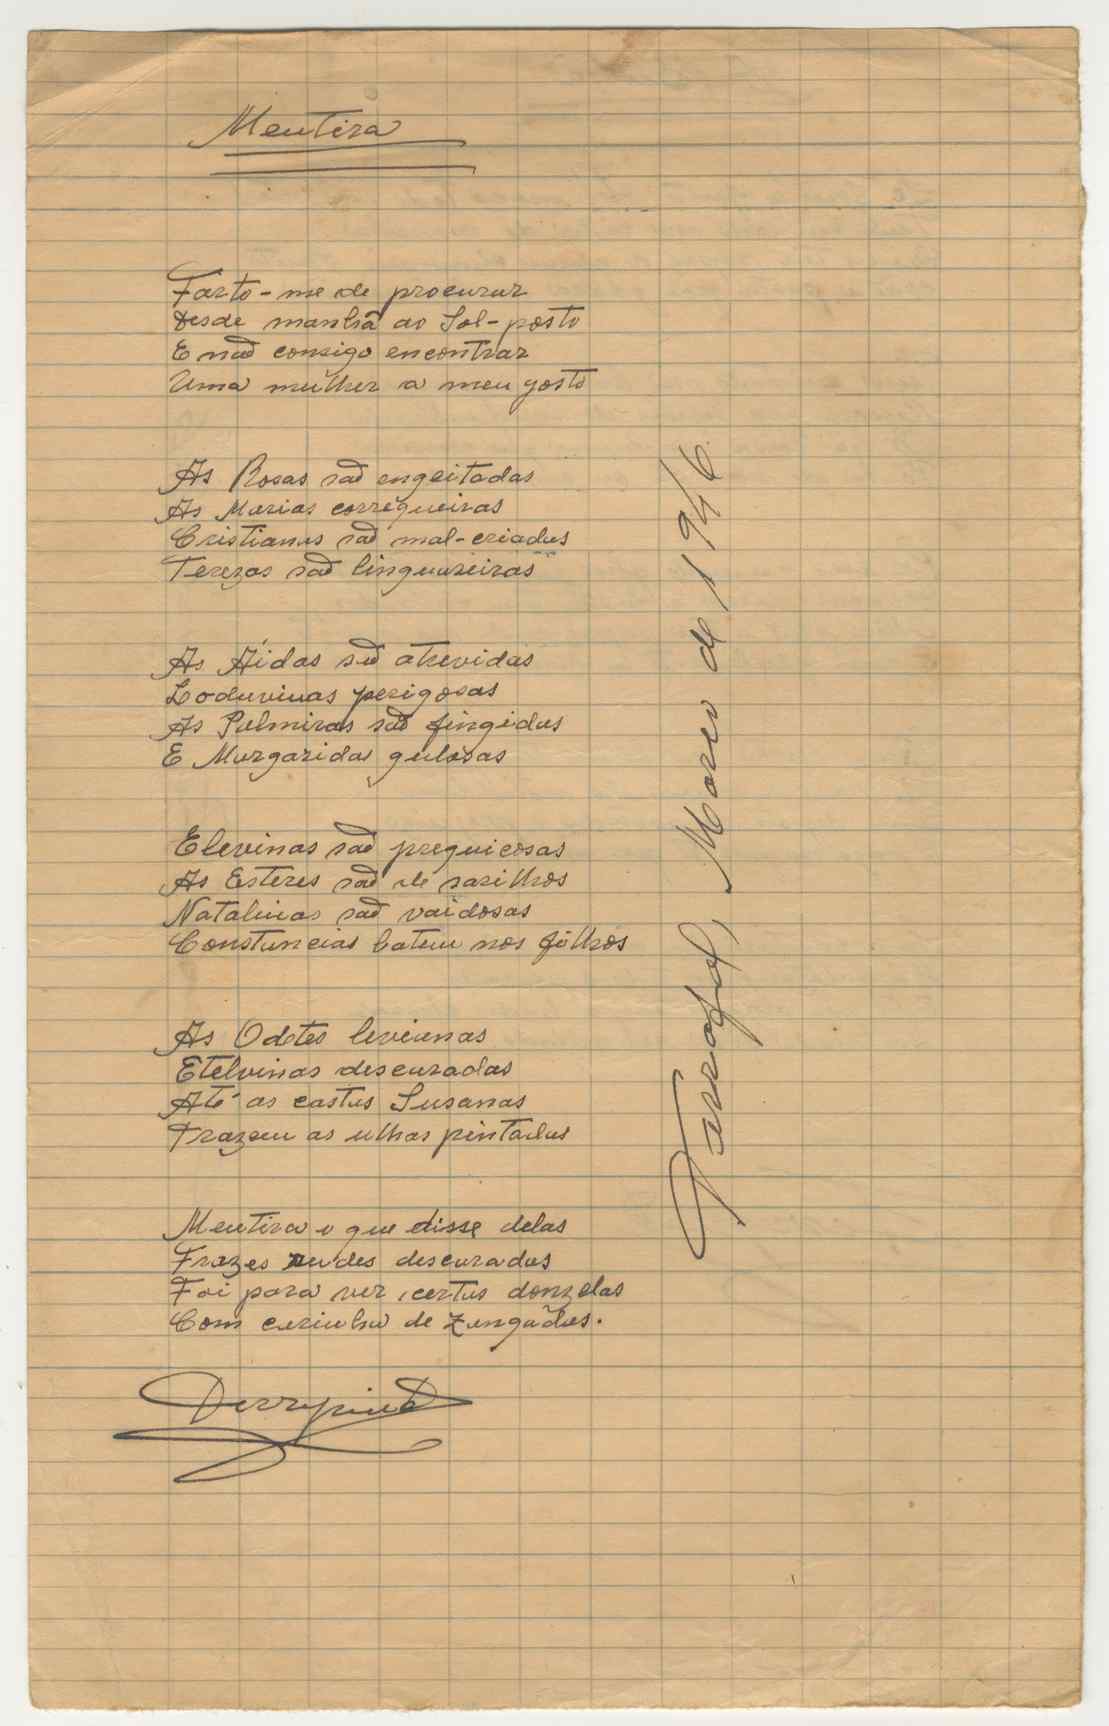 Mentira
Farto-me de procurar
Desde manhã ao Sol-posto
E não consigo encontrar
Uma mulher a meu gosto
As Rosas são engeitadas
As Marias corriqueiras
Cristianas são mal-criadas
Terezas são linguareiras
As Áidas são atrevidas
Loduvinas perigosas
As Palmiras são fingidas
E Margaridas gulosas
Elevinas são preguicosas
As Esteres são de sarilhos
Natalinas são vaidosas
Constancias batem nos filhos
As Odetes levianas
Etelvinas descuradas
Até as castas Susanas
Trazem as unhas pintadas
Mentira o que disse delas
Frazes rudes descuradas
Foi para ver certas donzelas
Com carinha de zangadas.
Tarrafal, Março de 1946